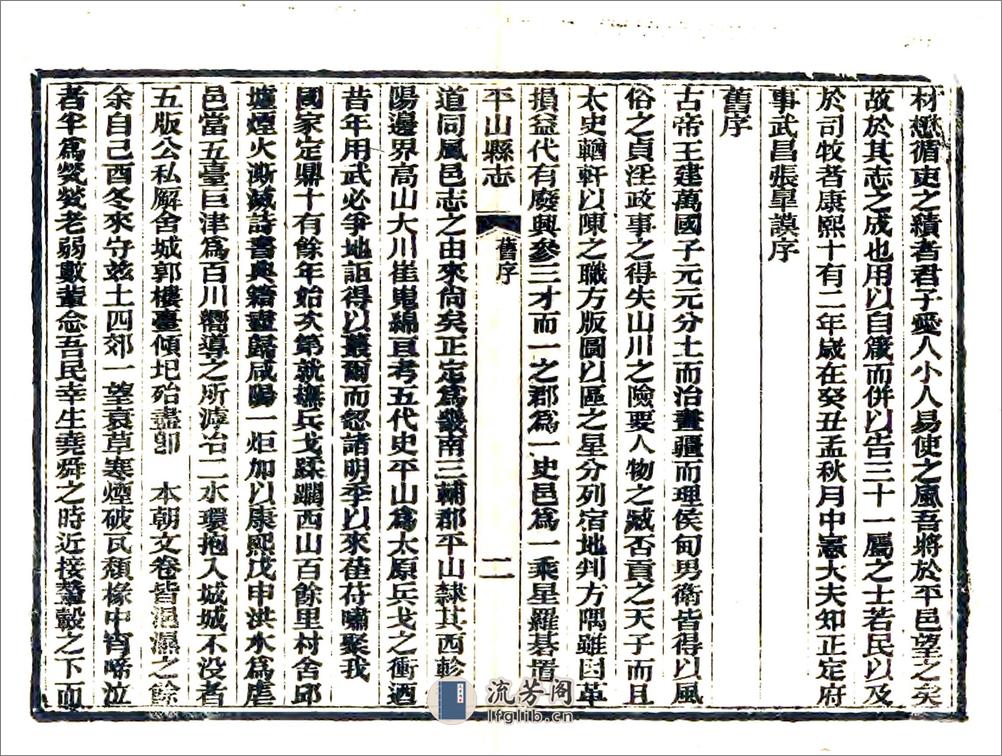 材懋循吏之績者君子愛人小人易使之風吾將於平邑望之矣
故於其志之成也用以自箴而併以告三十一屬之士若民以及
於司牧者康熙十有二年歲在癸丑孟秋月中憲大夫知正定府
事武昌張羣謨序
舊序
古帝王建萬國子元元分土而治畫疆而理侯甸男衛皆得以風
俗之貞淫政事之得失山川之險要人物之臧否貢之天子而且
太史輶軒以陳之職方版圖以區之星分列宿地判方隅雖因革
損益代有廢興參三才而一之郡為一史邑為一乘星羅碁置
平山縣志
舊序
二
道同風邑志之由來尚矣正定為畿南三輔郡平山隸其西軫
陽邊界高山大川崔嵬綿亘考五代史平山為太原兵戈之衝迺
昔年用武必爭地詎得以蕞爾而忽諸明季以來萑苻嘯聚我
國家定鼎十有餘年始次第就撫兵戈蹂躪西山百餘里村舍邱
墟煙火漸滅詩書典籍盡歸咸陽一炬加以康熙戊申洪水為虐
邑當五臺巨津為百川嚮導之所滹冶二水環抱入城城不没者
五版公私廨舍城郭樓臺傾圯殆盡卽 本朝文卷皆浥濕之餘
余自己酉冬來守兹土四郊一望衰草寒煙破瓦頹椽中宵啼泣
者半為煢煢老弱數輩念吾民幸生堯舜之時近接輦轂之下而
流芳阁
lfglib.cn